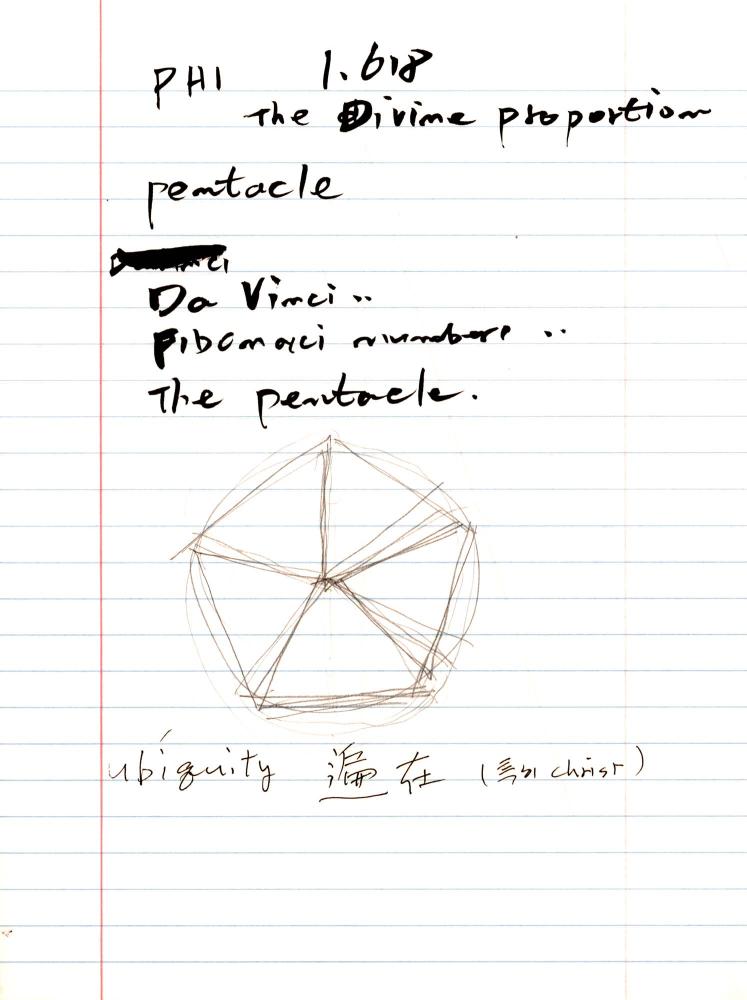 PHI 1.618
The Divine proportion
pentacle
Da Vinci ..
Fibonacci numbers ..
The pentacle.
ubiquity 遍在 (특히 christ)